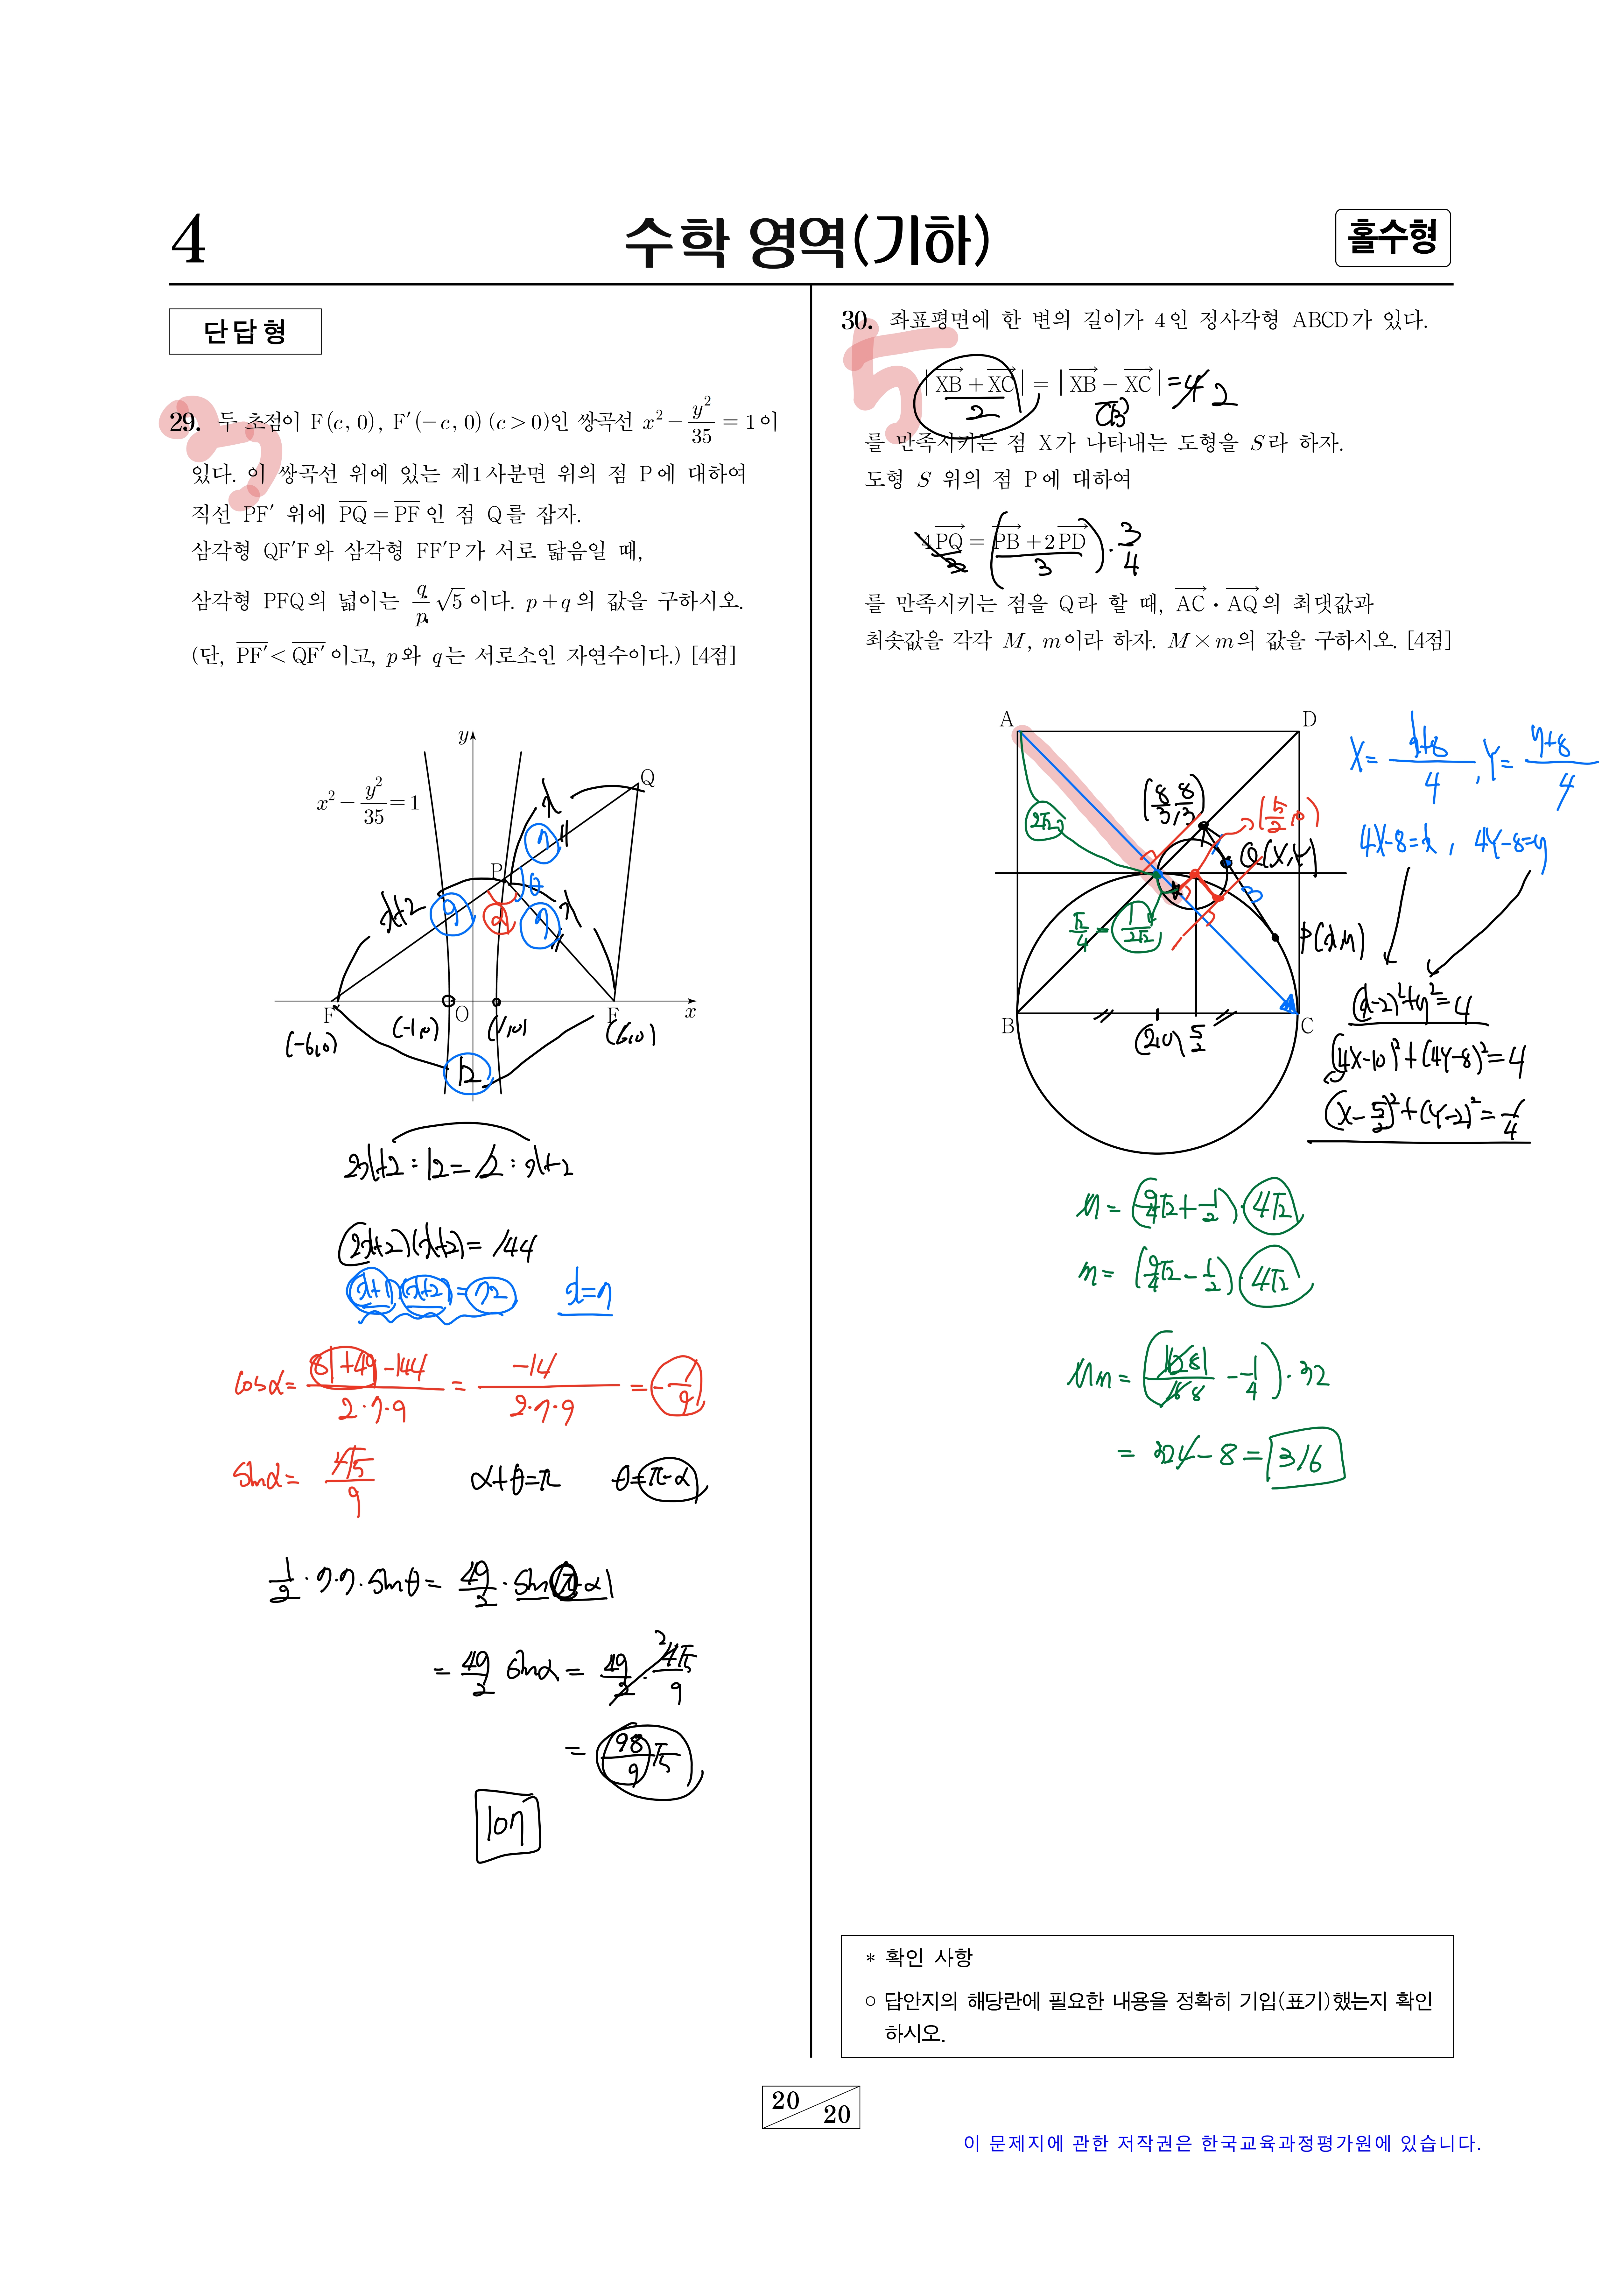 4
수학 영역(기하)
홀수형
단답형
3
29. 두 초점이 F(c, 0), F′(−c, 0) (c>0)인 쌍곡선 x² − y²/35 = 1이
있다. 이 쌍곡선 위에 있는 제1사분면 위의 점 P에 대하여
직선 PF′ 위에 PQ = PF인 점 Q를 잡자.
삼각형 QF′F와 삼각형 FF′P가 서로 닮음일 때,
삼각형 PFQ의 넓이는 q/p √5 이다. p+q의 값을 구하시오.
(단, PF′ < QF′이고, p와 q는 서로소인 자연수이다.) [4점]
y
Q
x² − y²/35 = 1
x
7
P
θ
x+2
9
α
7
x
F′
O
F
x
(-6,0)
(-1,0)
(1,0)
(6,0)
12
2x+2 : 12 = 12 : x+2
(2x+2)(x+2) = 144
(x+1)(x+2) = 72
x=7
cosα = 81+49-144 / 2·7·9 = -14 / 2·7·9 = -1/9
sinα = 4√5 / 9
α+θ=π
θ=π-α
1/2 · 7·7·sinθ = 49/2 · sin(π-α)
= 49/2 sinα = 49/2 · 4√5/9
2
= 98/9 √5
107
5
30. 좌표평면에 한 변의 길이가 4인 정사각형 ABCD가 있다.
|XB + XC| = |XB − XC| = 4 2
2
CB
를 만족시키는 점 X가 나타내는 도형을 S라 하자.
도형 S 위의 점 P에 대하여
4PQ = (PB + 2PD) · 3/4
3
3
를 만족시키는 점을 Q라 할 때, AC · AQ의 최댓값과
최솟값을 각각 M, m이라 하자. M×m의 값을 구하시오. [4점]
A
D
X = x+8 / 4 , Y = y+8 / 4
(8/3, 8/3)
2√2
4X-8=x , 4Y-8=y
Q(X,Y)
1
3
√2/4 = 1/2√2
P(x,y)
(x-2)²+y²=4
B
(2,0)
5/2
C
(4X-10)²+(4Y-8)²=4
(X-5/2)²+(Y-2)²=1/4
M = (9/4√2 + 1/2) · 4√2
m = (9/4√2 - 1/2) · 4√2
Mm = (162 81 / 16 8 - 1/4) · 32
= 324 - 8 = 316
* 확인 사항
○ 답안지의 해당란에 필요한 내용을 정확히 기입(표기)했는지 확인
하시오.
20
20
이 문제지에 관한 저작권은 한국교육과정평가원에 있습니다.